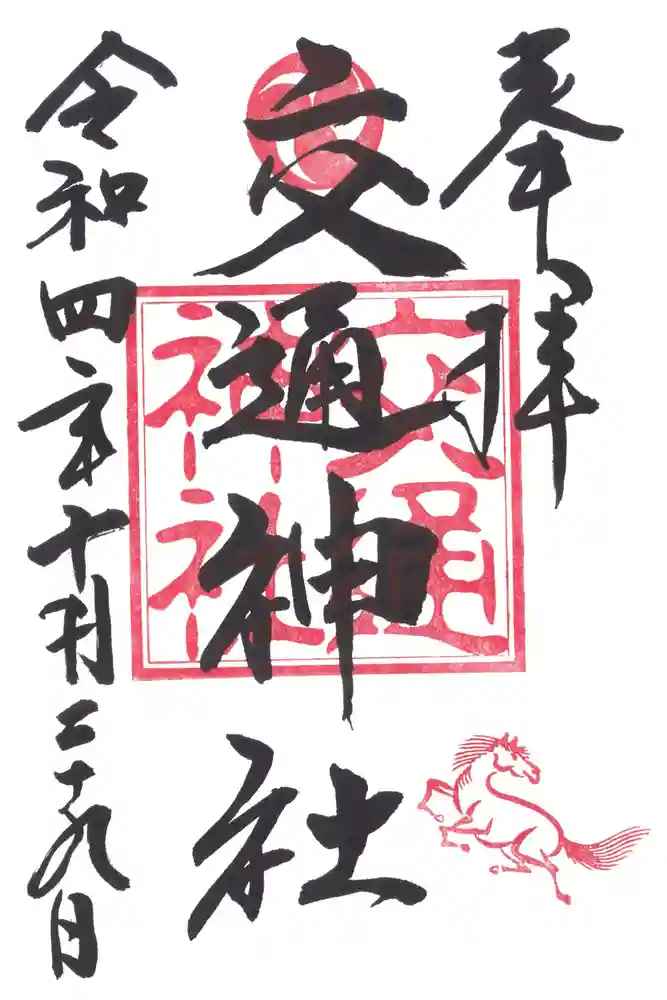 奉拝
交通神社
交通
神社
令和四年十月二十九日